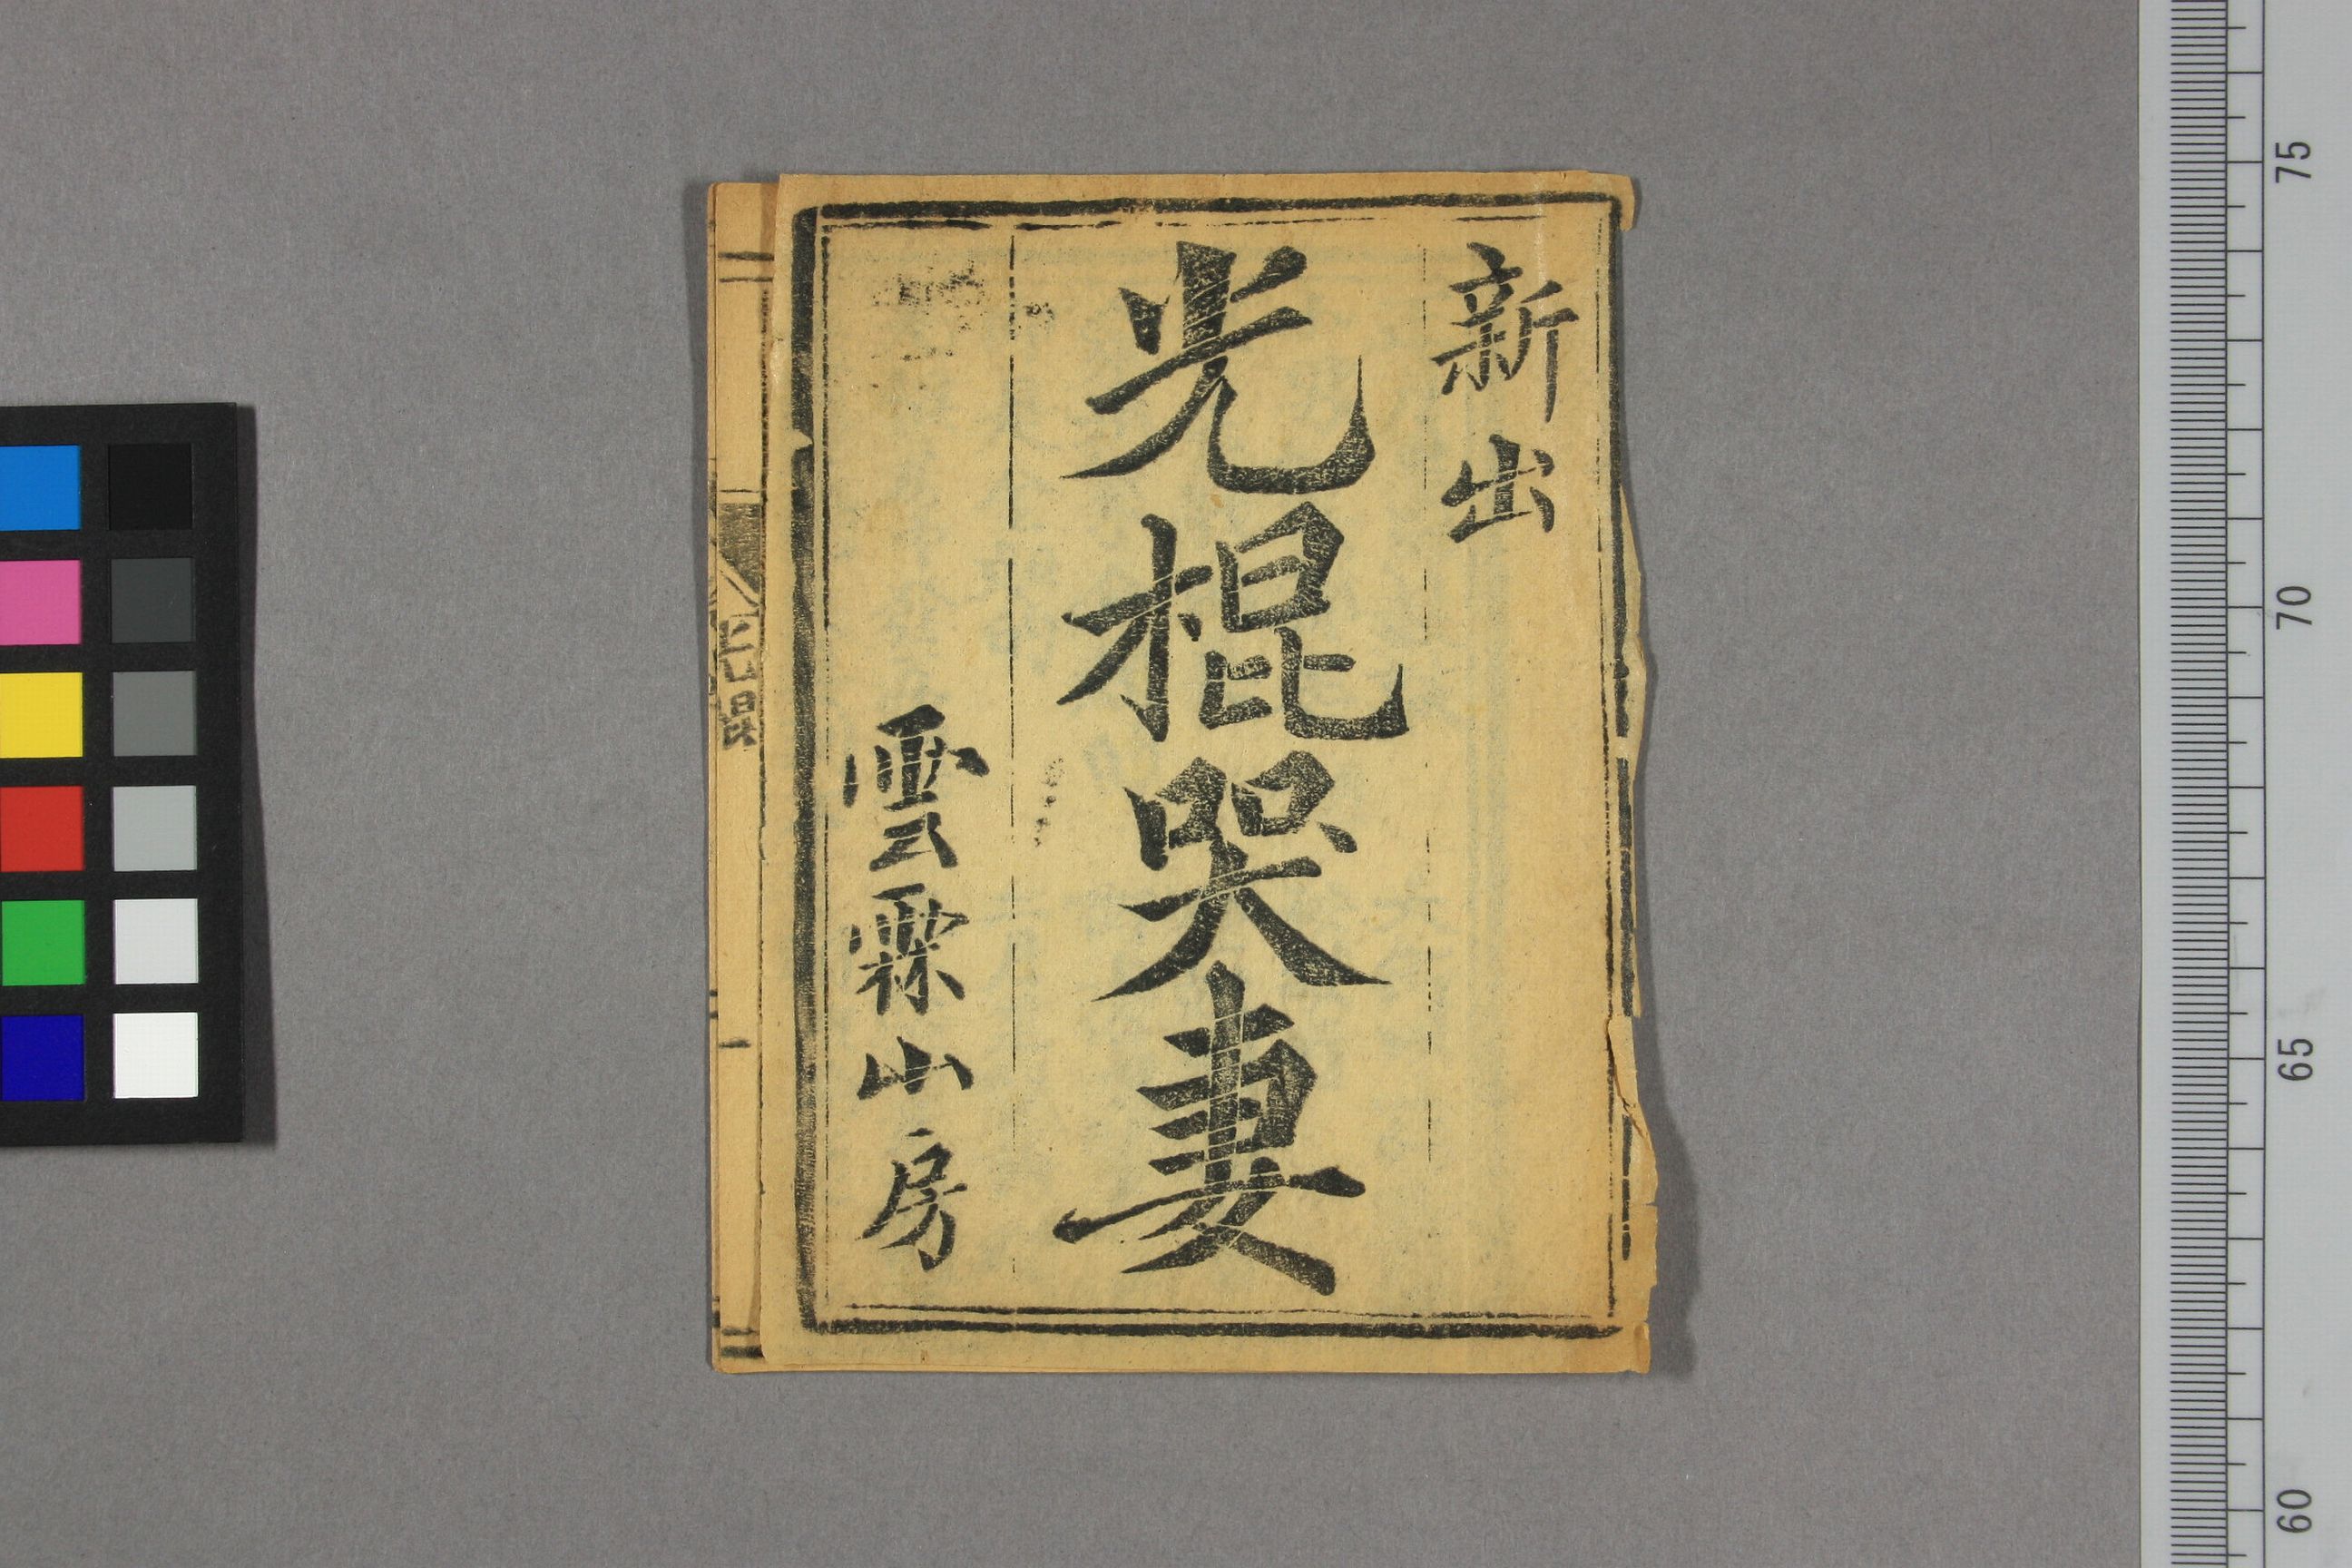 新出
光棍哭妻
雲霖山房
75
70
65
60